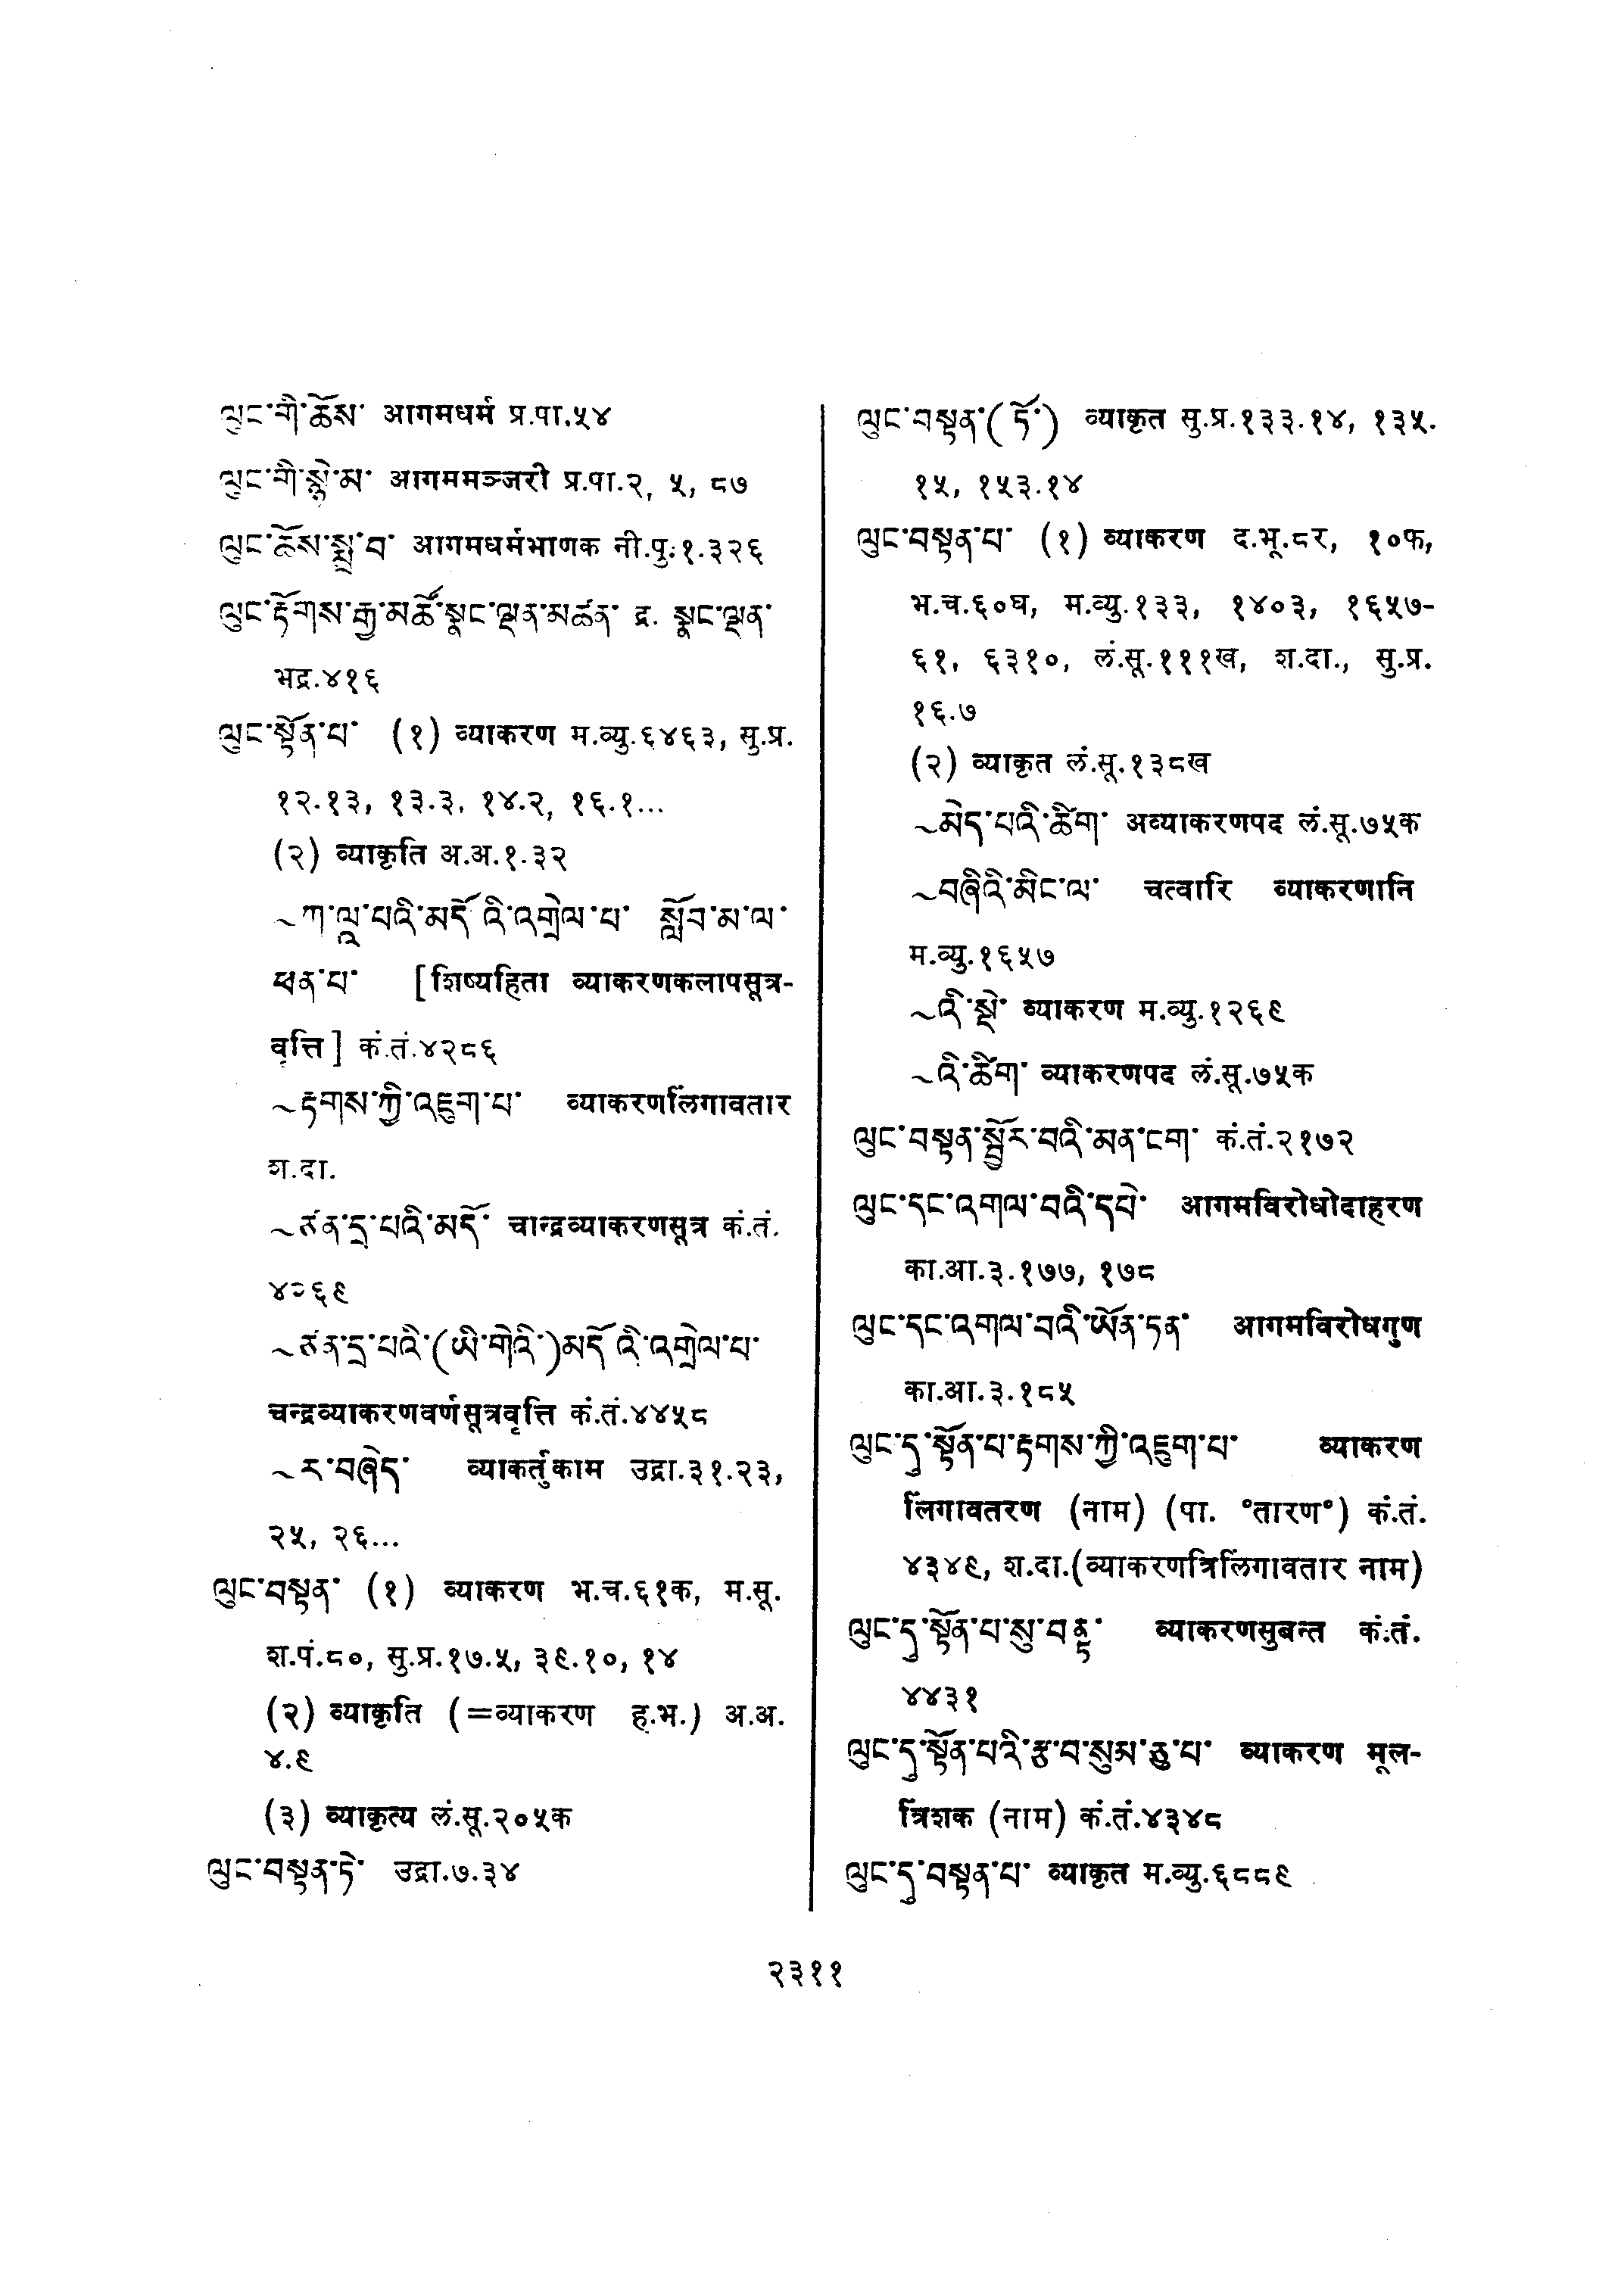 ལུང་གི་ཆོས་ आगमधर्म प्र.पा.५४
ལུང་གི་སྙེ་མ་ आगममञ्जरी प्र.पा.२, ५, ८७
ལུང་ཆོས་སྨྲ་བ་ आगमधर्मभाणक नी.पु.१.३२६
ལུང་རྟོགས་རྒྱ་མཚོ་སྣང་ལྡན་མཚན་ द्र. སྣང་ལྡན་
भद्र.४१६
ལུང་སྟོན་པ་ (१) व्याकरण म.व्यु.६४६३, सु.प्र.
१२.१३, १३.३, १४.२, १६.१...
(२) व्याकृति अ.अ.१.३२
~ཀ་ལཱ་པའི་མདོ་འི་འགྲེལ་པ་ སློབ་མ་ལ་
ཕན་པ་ [शिष्यहिता व्याकरणकलापसूत्र-
वृत्ति] कं.तं.४२८६
~རྟགས་ཀྱི་འཇུག་པ་ व्याकरणलिंगावतार
श.दा.
~ཙནྡྲ་པའི་མདོ་ चान्द्रव्याकरणसूत्र कं.तं.
~ཙནྡྲ་པའི་(ཡི་གེའི་)མདོ་འི་འགྲེལ་པ་
चन्द्रव्याकरणवर्णसूत्रवृत्ति कं.तं.४४५८
~ར་བཞེད་ व्याकर्तुकाम उद्रा.३१.२३,
२५, २६...
ལུང་བསྟན་ (१) व्याकरण भ.च.६१क, म.सू.
श.पं.८०, सु.प्र.१७.५, ३९.१०, १४
(२) व्याकृति (=व्याकरण ह.भ.) अ.अ.
४.९
(३) व्याकृत्य लं.सू.२०५क
ལུང་བསྟན་ཏེ་ उद्रा.७.३४
ལུང་བསྟན་(ཏོ་) व्याकृत सु.प्र.१३३.१४, १३५.
१५, १५३.१४
ལུང་བསྟན་པ་ (१) व्याकरण द.भू.८र, १०फ,
भ.च.६०घ, म.व्यु.१३३, १४०३, १६५७-
६१, ६३१०, लं.सू.१११ख, श.दा., सु.प्र.
१६.७
(२) व्याकृत लं.सू.१३८ख
~མེད་པའི་ཚིག་ अव्याकरणपद लं.सू.७५क
~བཞིའི་མིང་ལ་ चत्वारि व्याकरणानि
म.व्यु.१६५७
~འི་སྡེ་ व्याकरण म.व्यु.१२६९
~འི་ཚིག་ व्याकरणपद लं.सू.७५क
ལུང་བསྟན་སྦྱོར་བའི་མན་ངག་ कं.तं.२१७२
ལུང་དང་འགལ་བའི་དཔེ་ आगमविरोधोदाहरण
का.आ.३.१७७, १७८
ལུང་དང་འགལ་བའི་ཡོན་ཏན་ आगमविरोधगुण
का.आ.३.१८५
ལུང་དུ་སྟོན་པ་རྟགས་ཀྱི་འཇུག་པ་ व्याकरण
लिंगावतरण (नाम) (पा. °तारण°) कं.तं.
४३४९, श.दा.(व्याकरणत्रिलिंगावतार नाम)
ལུང་དུ་སྟོན་པ་སུ་བནྟ་ व्याकरणसुबन्त कं.तं.
४४३१
ལུང་དུ་སྟོན་པའི་རྩ་བ་སུམ་ཅུ་པ་ व्याकरण मूल-
त्रिंशक (नाम) कं.तं.४३४८
ལུང་དུ་བསྟན་པ་ व्याकृत म.व्यु.६८८९
२३११